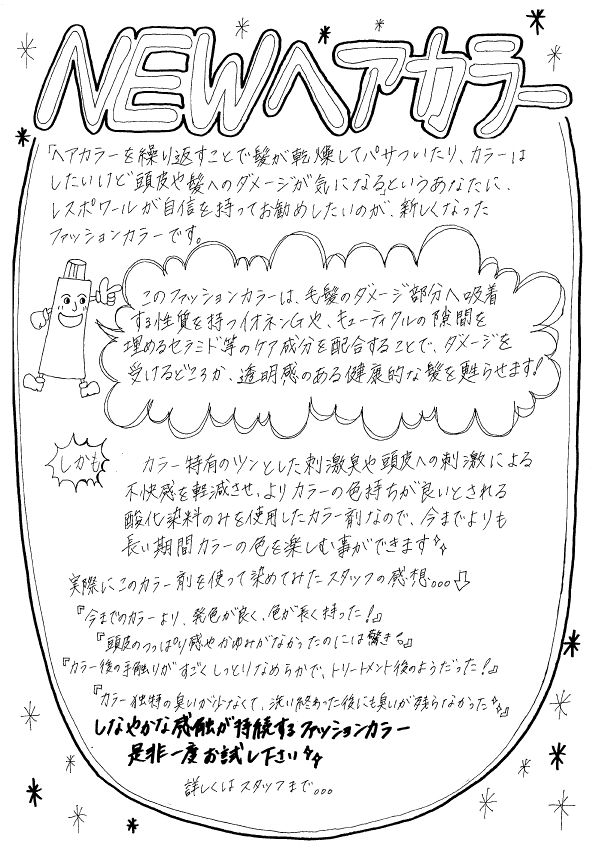 NEWヘアカラー
「ヘアカラーを繰り返すことで髪が乾燥してパサついたり、カラーは
したいけど頭皮や髪へのダメージが気になる」というあなたに、
レスポワールが自信を持ってお勧めしたいのが、新しくなった
ファッションカラーです。
このファッションカラーは、毛髪のダメージ部分へ吸着
する性質を持つイオネンGや、キューティクルの隙間を
埋めるセラミド等のケア成分を配合することで、ダメージを
受けるどころか、透明感のある健康的な髪を甦らせます!
しかも
カラー特有のツンとした刺激臭や頭皮への刺激による
不快感を軽減させ、よりカラーの色持ちが良いとされる
酸化染料のみを使用したカラー剤なので、今までよりも
長い期間カラーの色を楽しむ事ができます
実際にこのカラー剤を使って染めてみたスタッフの感想...
『今までのカラーより、発色が良く、色が長く持った!』
『頭皮のつっぱり感やかゆみがなかったのには驚きる』
『カラー後の手触りがすごくしっとりなめらかで、トリートメント後のようだった!』
『カラー独特の臭いが少なくて、洗い終わった後にも臭いが残らなかった』
しなやかな感触が持続するファッションカラー
是非一度お試し下さい
詳しくはスタッフまで...